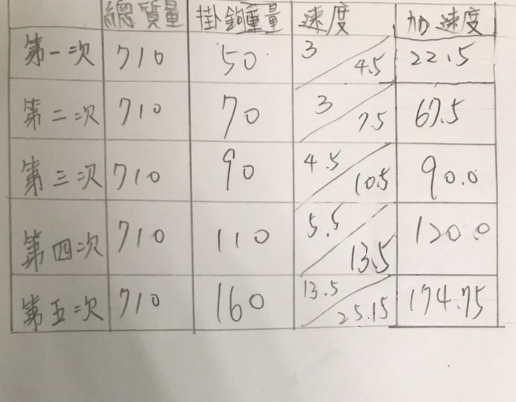 總質量 掛鉤重量 速度 加速度
第一次 710 50 3 / 4.5 22.5
第二次 710 70 3 / 7.5 67.5
第三次 710 90 4.5 / 10.5 90.0
第四次 710 110 5.5 / 13.5 120.0
第五次 710 160 13.5 / 25.15 174.75